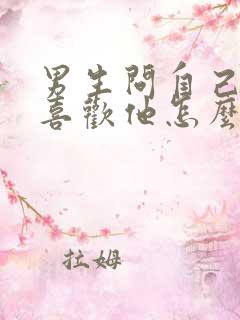 男生問自己
喜歡他怎麼
拉姆